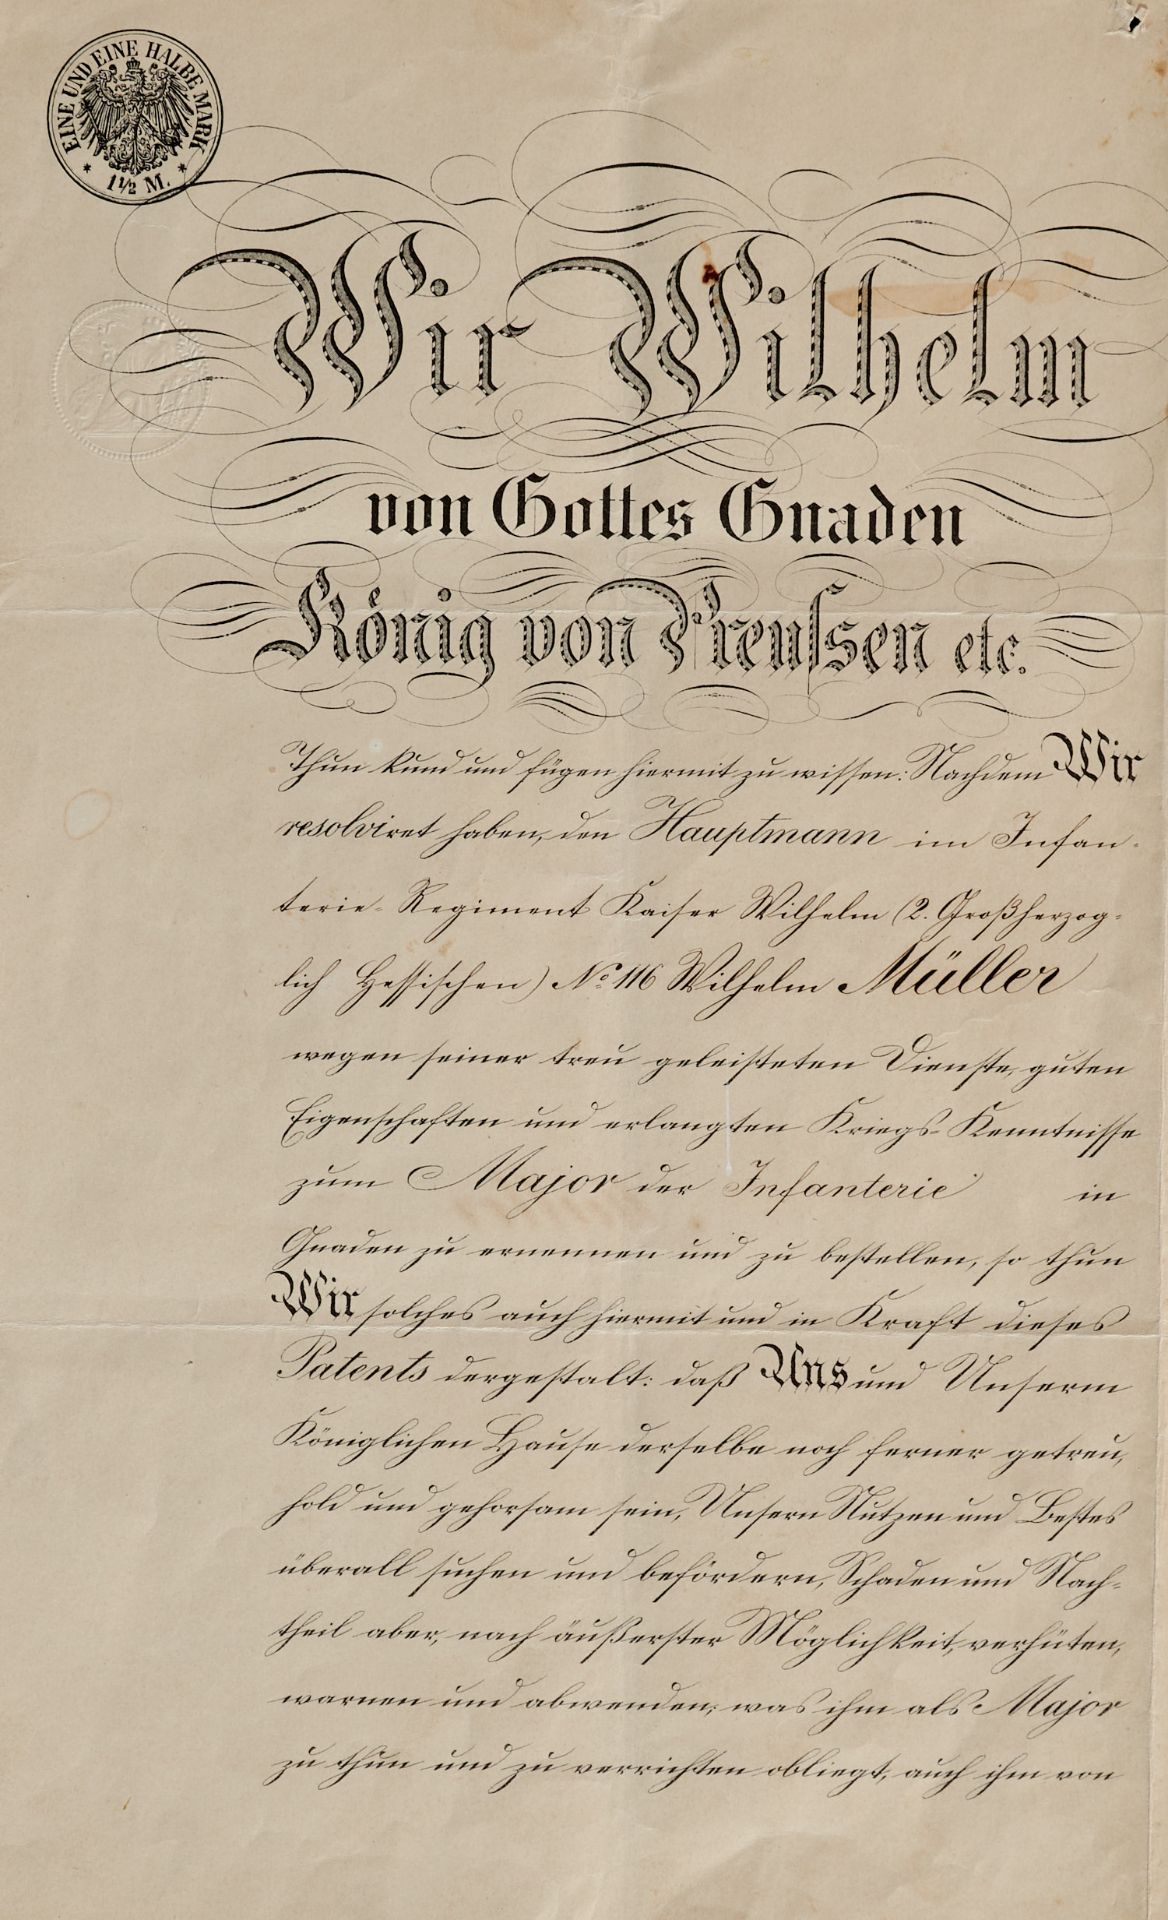 EINE UND EINE HALBE MARK
* 1½ M. *
Wir Wilhelm
von Gottes Gnaden
König von Preußen etc.
Thun kund und fügen hiermit zu wissen: Nachdem Wir
resolviret haben, den Hauptmann im Infan-
terie-Regiment Kaiser Wilhelm (2. Großherzog-
lich Hessischen) No 116 Wilhelm Müller
wegen seiner treu geleisteten Dienste, guten
Eigenschaften und erlangten Kriegs-Kenntnisse
zum Major der Infanterie in
Gnaden zu ernennen und zu bestellen, so thun
Wir solches auch hiermit und in Kraft dieses
Patents dergestalt: daß Uns und Unserm
Königlichen Hause derselbe noch ferner getreu,
hold und gehorsam sein, Unsern Nutzen und Bestes
überall suchen und befördern, Schaden und Nach-
theil aber, nach äußerster Möglichkeit, verhüten,
warnen und abwenden; was ihm als Major
zu thun und zu verrichten obliegt, auch ihm von